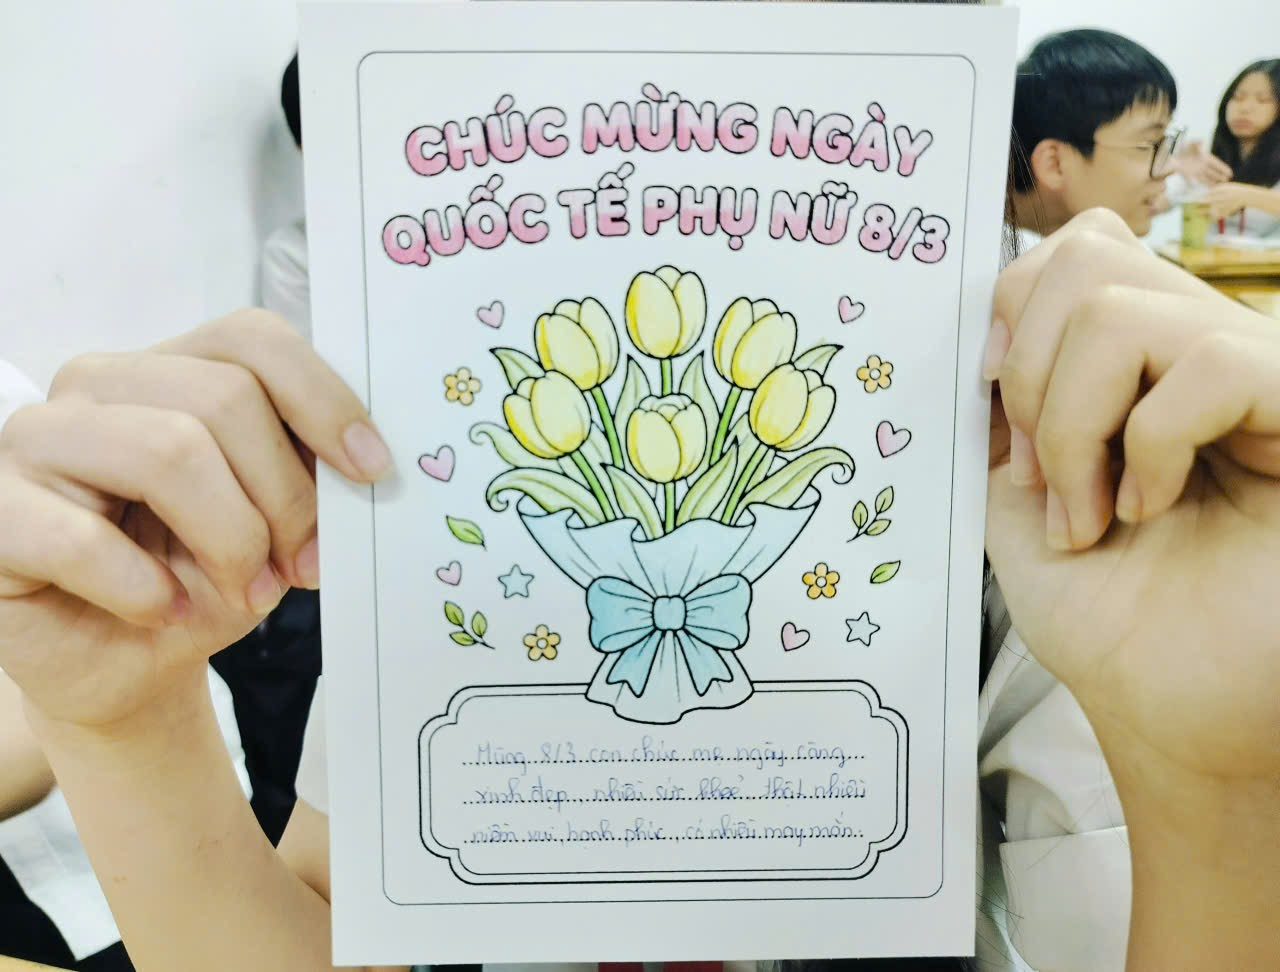 CHÚC MỪNG NGÀY
QUỐC TẾ PHỤ NỮ 8/3
Mừng 8/3 con chúc mẹ ngày càng
xinh đẹp, nhiều sức khoẻ, thật nhiều
niềm vui, hạnh phúc, có nhiều may mắn.